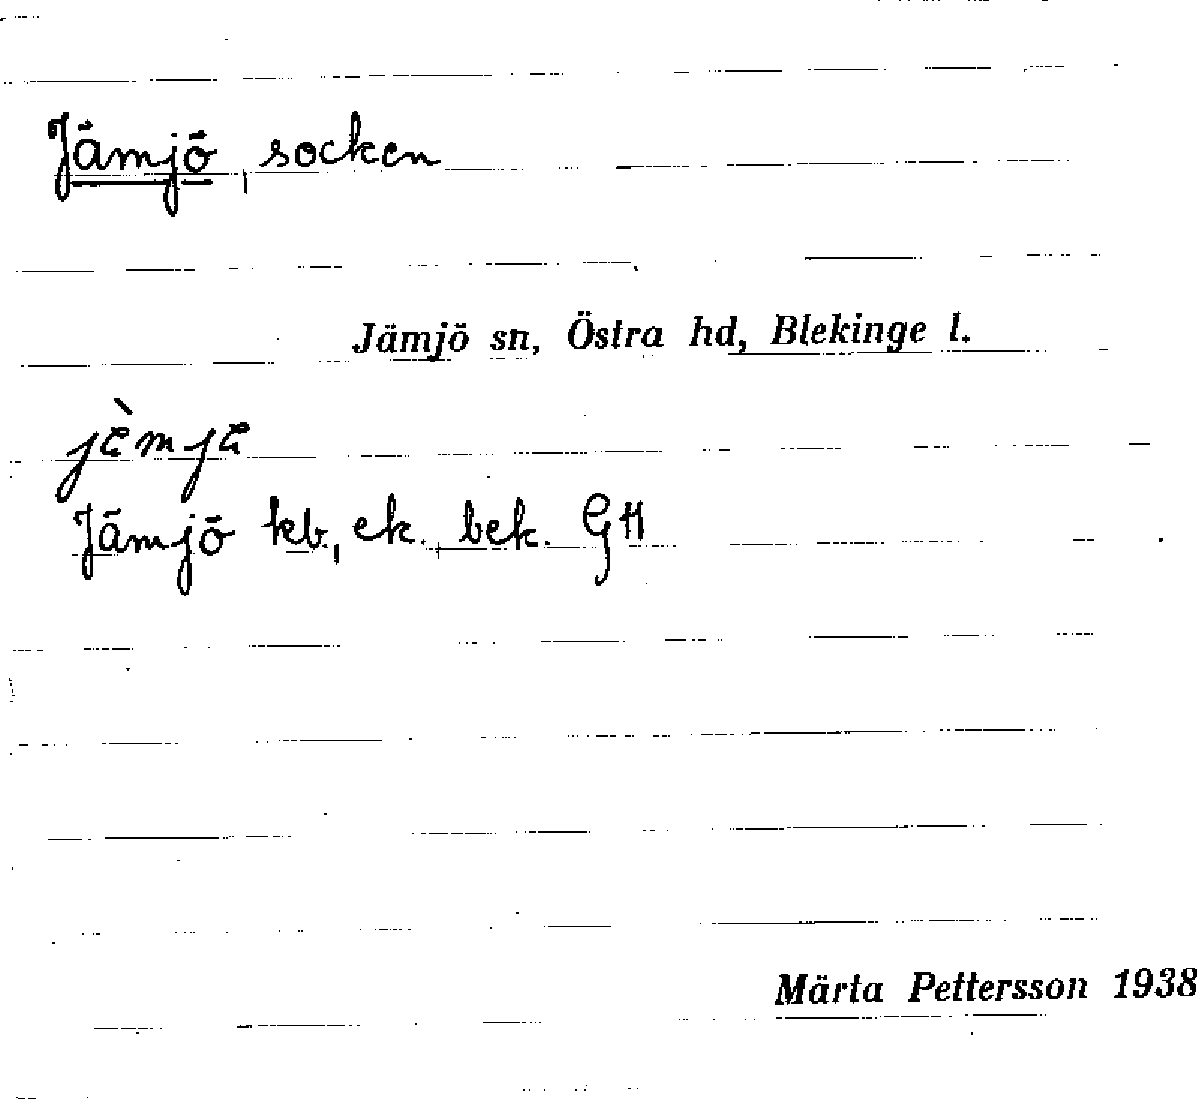 Jämjö, socken
Jämjö sn, Östra hd, Blekinge l.
Jämjö kb, ek., bek. GH
Märta Pettersson 1938